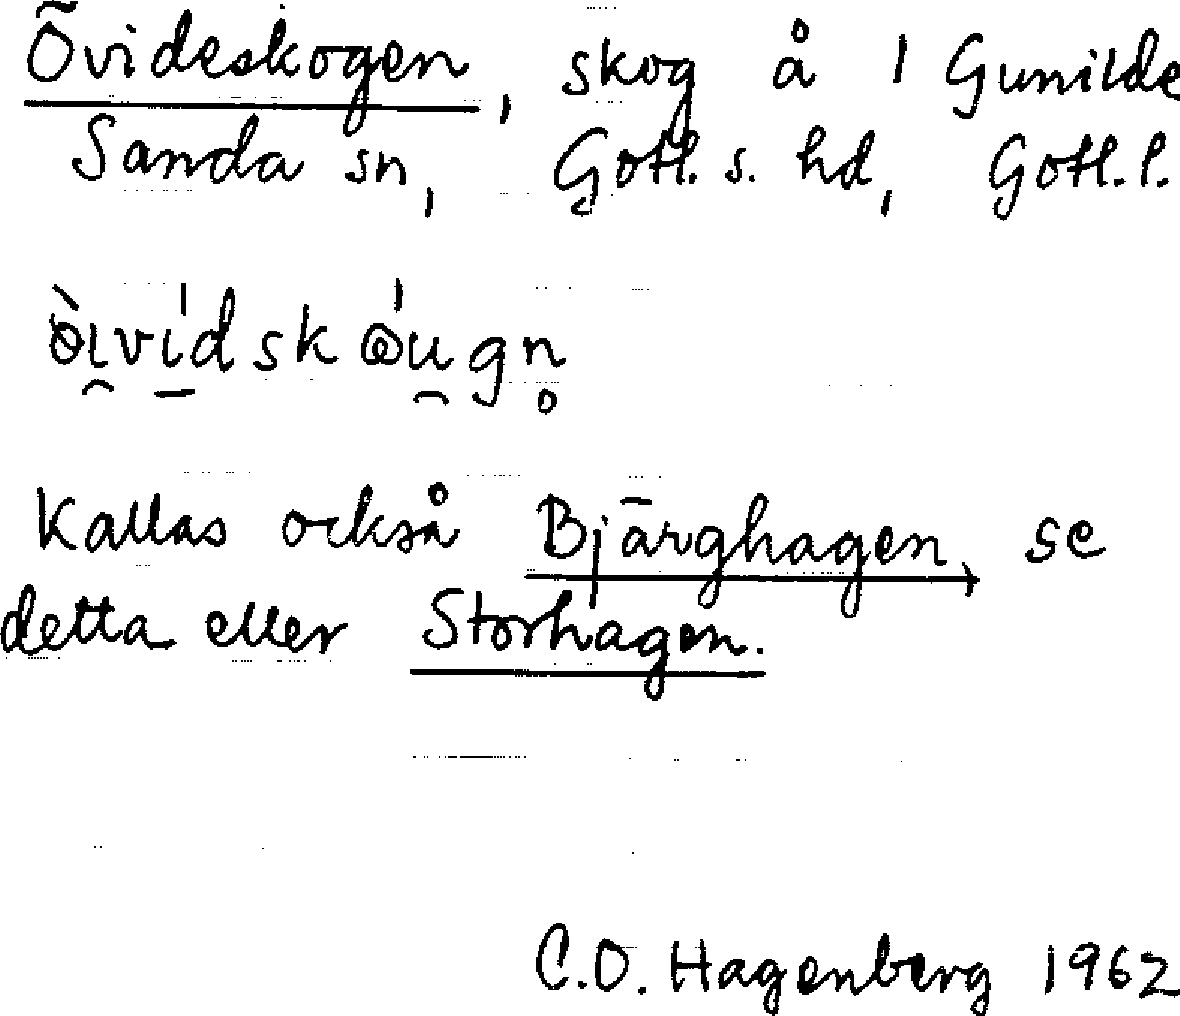 Övideskogen, skog å 1 Gunilde
Sanda sn, Gotl. s. hd, Gotl. l.
Kallas också Bjärghagen, se
detta eller Storhagen.
C.O. Hagenberg 1962